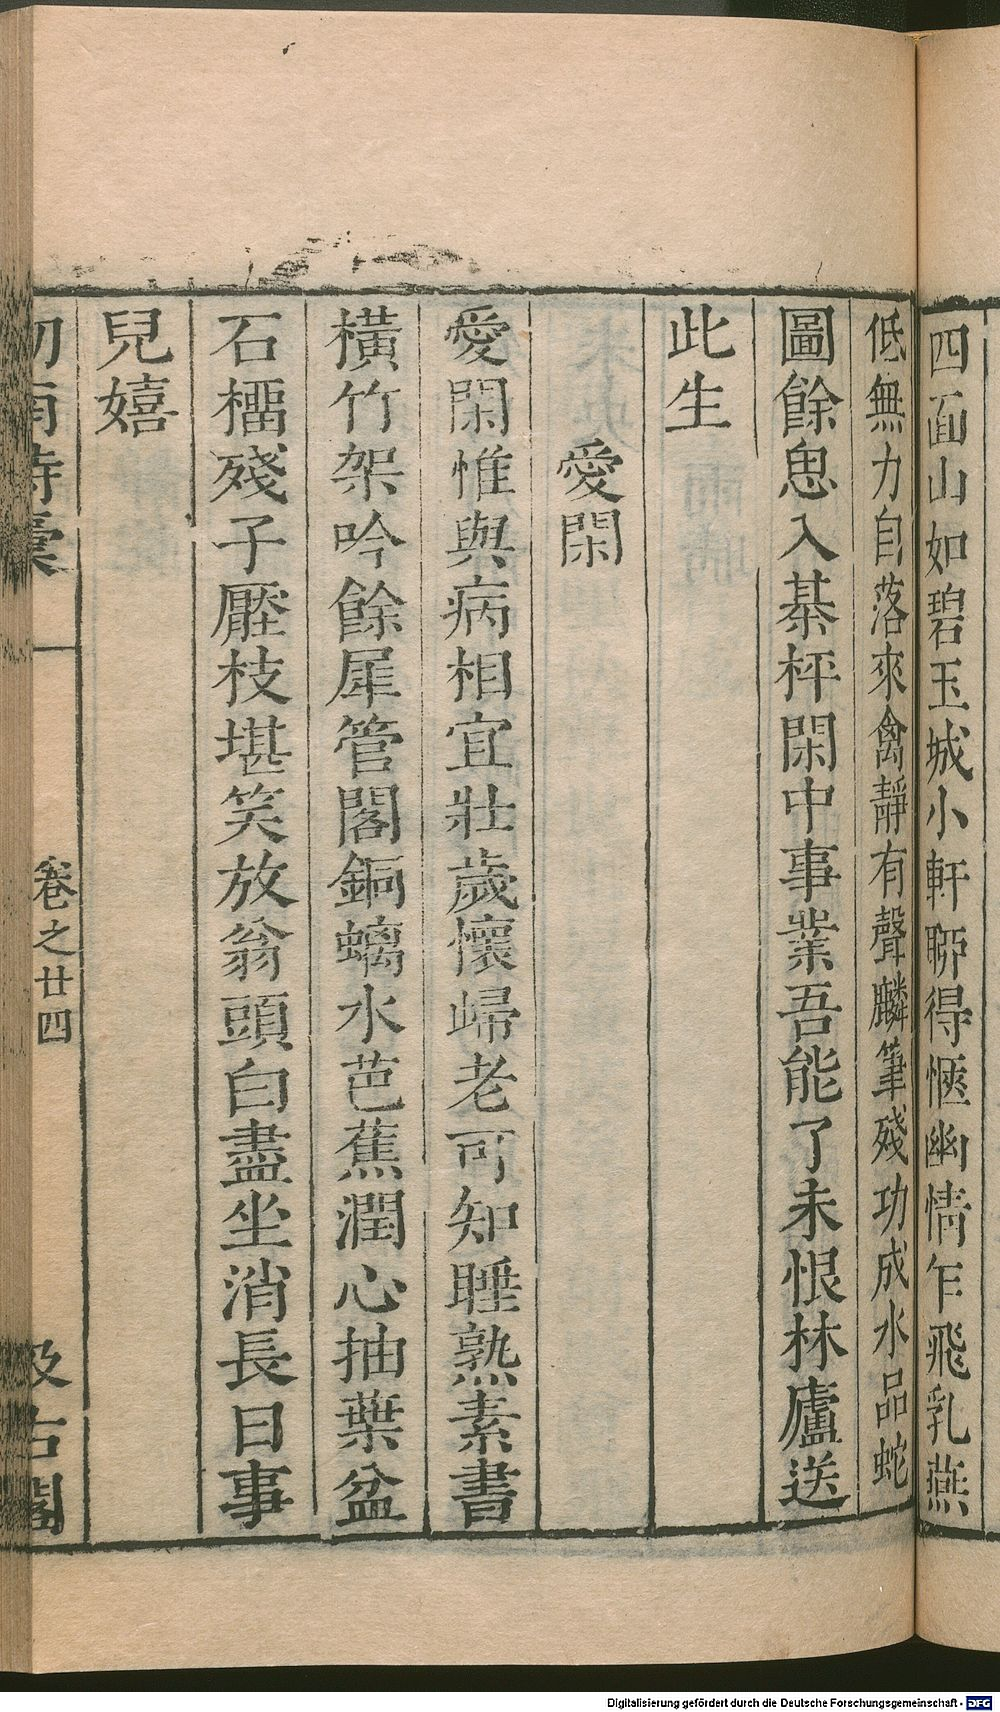 四面山如碧玉城小軒聊得愜幽情乍飛乳燕
低無力自落來禽靜有聲麟筆殘功成水品蛇
圖餘思入棊枰閑中事業吾能了未恨林廬送
此生
愛閑
愛閑惟與病相宜壯歲懷歸老可知睡熟素書
橫竹架吟餘犀管閣銅螭水芭蕉潤心抽葉盆
石榴殘子壓枝堪笑放翁頭白盡坐消長日事
兒嬉
劒南詩稾
卷之廿四
汲古閣
Digitalisierung gefördert durch die Deutsche Forschungsgemeinschaft - DFG